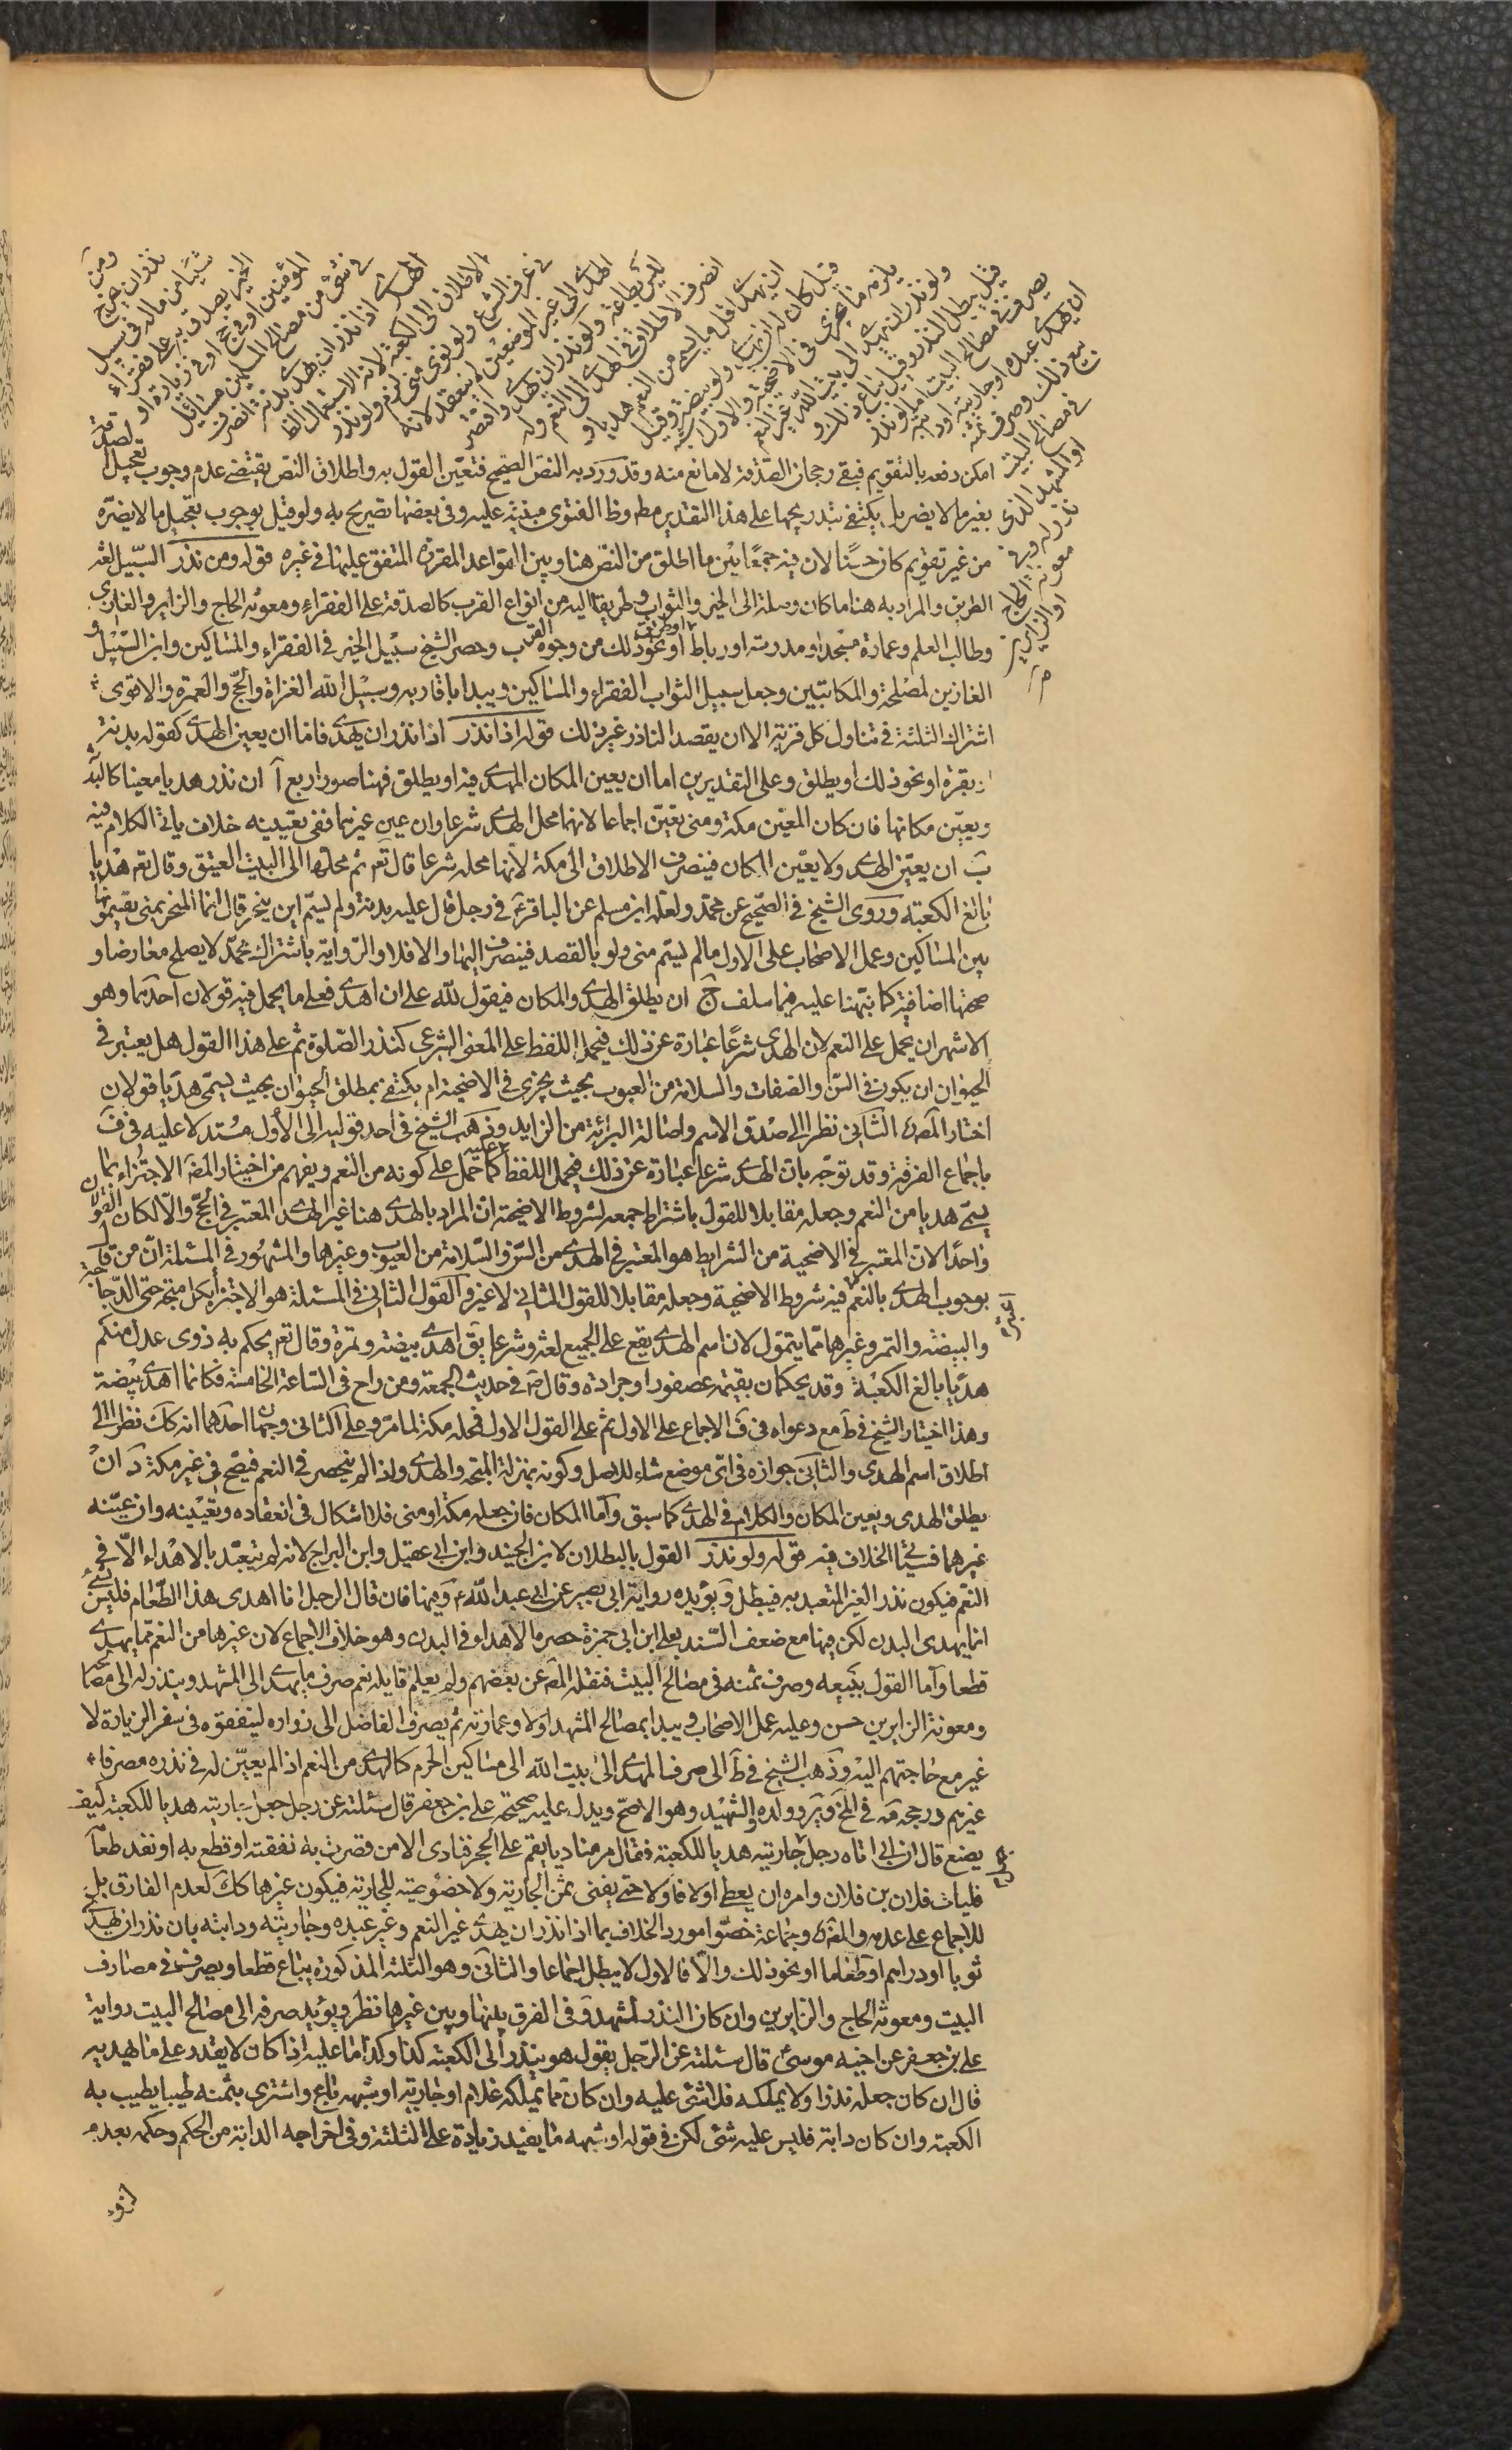 ومن
نذر ان يخرج
شيئا من ماله فى سبيل
الخير يصدق به على فقراء
المؤمنين او فى حج او فى زيارة او
فى شئ من مصالح المسلمين مسائل
الهدى اذا نذر ان يهدى بدنة انصرف
الاطلاق الى الكعبة لانه الاستعمال الظ
فى عرف الشرع ولو نوى منى لزم ولو نذر
الهدى الى غير الموضعين لم ينعقد لانه
ليس بطاعة ولو نذر ان يهدى واقتصر
انصرف الاطلاق فى الهدى الى النعم وله
ان يهدى اقل ما يسمى من النعم هديا و
قيل كان له ان يهدى ولو بيضة وقيل
يلزمه ما يجزى فى الاضحية والاول اشبه
ولو نذر ان يهدى الى بيت الله غير النعم
قيل يبطل النذر وقيل يباع ذلك و
يصرف فى مصالح البيت اما لو نذر
ان يهدى عبده او جاريته او دابته
بيع ذلك وصرف ثمنه
فى مصالح البيت
او المشهد الذى
نذر له وفى
معونة الحاج
او الزايرين
امكن دفعه بالتقويم فبقى رجحان الصدقة لا مانع منه وقد ورد به النص الصحيح فتعين القول به واطلاق النص يقتضى عدم وجوب تعجيل الصدقة
بغير ما لا يضر بل يكتفى بتدريجها على هذا التقدير مط وظ الفتوى مبنية عليه وفى بعضها تصريح به ولو قيل بوجوب تعجيل ما لا يضره
من غير تقويم كان حسنا لان فيه جمعا بين ما اطلق من النص هنا وبين القواعد المقررة المتفق عليها فى غيره قوله ومن نذر السبيل لغة
الطريق والمراد به هنا ما كان وسيلة الى الخير والثواب وطريقا اليه من انواع القرب كالصدقة على الفقراء ومعونة الحاج والزاير والغازى
وطالب العلم وعمارة مسجد او مدرسة او رباط او نحو ذلك من وجوه القرب وحصر الشيخ سبيل الخير فى الفقراء والمساكين وابن السبيل و
الغازين لمصلحة والمكاتبين وجعل سبيل الثواب الفقراء والمساكين ويبدا باقاربه وسبيل الله الغزاة والحج والعمرة والاقوى
اشتراك الثلثة فى تناول كل قربة الا ان يقصد الناذر غير ذلك قوله اذا نذر اذا نذر ان يهدى فاما ان يعين الهدى كقوله بدنة
او بقرة او نحو ذلك او يطلق وعلى التقديرين اما ان يعين المكان المهدى فيه او يطلق فهنا صور اربع آ ان نذر هديا معينا كالبدنة
ويعين مكانها فان كان المعين مكة ومنى تعين اجماعا لانهما محل الهدى شرعا وان عين غيرهما ففى تعيينه خلاف ياتى الكلام فيه
ب ان يعين الهدى ولا يعين المكان فينصرف الاطلاق الى مكة لانها محله شرعا قال تع ثم محلها الى البيت العتيق وقال تع هديا
بالغ الكعبة وروى الشيخ فى الصحيح عن محمد ولعله ابن مسلم عن الباقر ع فى رجل قال عليه بدنة ولم يسم اين ينحر قال انما المنحر بمنى يقسمونها
بين المساكين وعمل الاصحاب على الاول ما لم يسم منى ولو بالقصد فينصرف اليها والا فلا والرواية باشتراك محمد لا يصلح معارضا و
صحتها اضافية كما نبهنا عليه فيما سلف ج ان يطلق الهدى والمكان فيقول لله على ان اهدى فعلى ما يحمل فيه قولان احدهما وهو
الاشهر ان يحمل على النعم لان الهدى شرعا عبارة عن ذلك فيحمل اللفظ على المعنى الشرعى كنذر الصلوة ثم على هذا القول هل يعتبر فى
الحيوان ان يكون فى السن والصفات والسلامة من العيوب بحيث يجزى فى الاضحية ام يكتفى بمطلق الحيوان بحيث يسمى هديا قولان
اختار المصره الثانى نظرا الى صدق الاسم واصالة البرائة من الزايد وذهب الشيخ فى احد قوليه الى الاول مستدلا عليه فى ف
باجماع الفرقة وقد توجه بان الهدى شرعا عبارة عن ذلك فيحمل اللفظ عليه كما حمل على كونه من النعم ويفهم من اختيار المص الاجتزاء بما
يسمى هديا من النعم وجعله مقابلا للقول باشتراط جمعه لشروط الاضحية ان المراد بالهدى هنا غير الهدى المعتبر فى الحج والا لكان القولان
واحدا لان المعتبر فى الاضحية من الشرايط هو المعتبر فى الهدى من السن والسلامة من العيوب وغيرها والمشهور فى المسئلة ان من قال
بوجوب الهدى بالنعم يعتبر فيه شروط الاضحية وجعله مقابلا للقول الثانى لا غير والقول الثانى فى المسئلة هو الاجتزاء بكل منحة حتى الدجاجة
والبيضة والتمر وغيرها مما يتمول لان اسم الهدى يقع على الجميع لغة وشرعا يق اهدى بيضة وتمرة وقال تع يحكم به ذوى عدل منكم
هديا بالغ الكعبة وقد يحكمان بقيمة عصفور او جرادة وقال ص فى حديث الجمعة ومن راح فى الساعة الخامسة فكانما اهدى بيضة
وهذا اختيار الشيخ فى ط مع دعواه فى ف الاجماع على الاول ثم على القول الاول فمحله مكة لما مر وعلى الثانى وجهان احدهما انه كك نظرا الى
اطلاق اسم الهدى والثانى جوازه فى اى موضع شاء للاصل وكونه بمنزلة المنحة والهدى ولذا لم ينحصر فى النعم فيصح فى غير مكة د ان
يطلق الهدى ويعين المكان والكلام فى الهدى كما سبق واما المكان فان جعله مكة او منى فلا اشكال فى انعقاده وتعيينه وان عينه
غيرهما فسياتى الخلاف فيه قوله ولو نذر القول بالبطلان لابن الجنيد وابن ابى عقيل وابن البراج لانه لم يتعبد بالاهداء الا فى
النعم فيكون نذر الغير المتعبد به فيبطل ويؤيده رواية ابى بصير عن ابى عبد الله ع وفيها فان قال الرجل انا اهدى هذا الطعام فليس بشئ
انما يهدى البدن لكن فيها مع ضعف السند بعلى ابن ابى حمزة حصر ما الاهدا فى البدن وهو خلاف الاجماع لان غيرها من النعم مما يهدى
قطعا واما القول ببيعه وصرف ثمنه فى مصالح البيت فنقله المص عن بعضهم ولم يعلم قايله نعم صرف ما يهدى الى المشهد وينذر له الى مصالحه
ومعونة الزايرين حسن وعليه عمل الاصحاب ويبدا بمصالح المشهد اولا وعمارته ثم يصرف الفاضل الى زواره لينفقوه فى سفر الزيارة لا
غير مع حاجتهم اليه وذهب الشيخ فى ط الى صرف المهدى الى بيت الله الى مساكين الحرم كالهدى من النعم اذا لم يعين له فى نذره مصرفا
غيرهم ورجحه مه فى المخ وير وولده والشهيد وهو الاصح ويدل عليه صحيحة على بن جعفر قال سئلته عن رجل جعل جاريته هديا للكعبة كيف
يصنع قال ان ابى اتاه رجل جعل جاريته هديا للكعبة فقال مر مناديا يقم على الحجر فنادى الا من قصرت به نفقته او قطع به او نفد طعامه
فليات فلان بن فلان وامره ان يعطى اولا فاولا حتى يفنى ثمن الجارية ولا خصوصية للجارية فيكون غيرها كك لعدم الفارق بل
للاجماع على عدمه والمصره وجماعة خصوا مورد الخلاف بما اذا نذر ان يهدى غير النعم وغير عبده وجاريته ودابته بان نذر ان يهدى
ثوبا او دراهم او طعاما او نحو ذلك والا فالاول لا يبطل اجماعا والثانى وهو الثلثة المذكورة يباع قطعا ويصرف ثمنه فى مصارف
البيت ومعونة الحاج والزايرين وان كان النذر لمشهد وفى الفرق بينها وبين غيرها نظر ويؤيد صرفه الى مصالح البيت رواية
على بن جعفر عن اخيه موسى ع قال سئلته عن الرجل يقول هو ينذر الى الكعبة كذا وكذا ما عليه اذا كان لا يقدر على ما يهديه
قال ان كان جعله نذرا ولا يملكه فلا شئ عليه وان كان مما يملكه غلام او جارية او شبهه باع واشترى بثمنه طيبا يطيب به
الكعبة وان كان دابة فليس عليه شئ لكن فى قوله او شبهه ما يفيد زيادة على الثلثة وفى اخراجه الدابة من الحكم وحكمه بعدم
لزوم